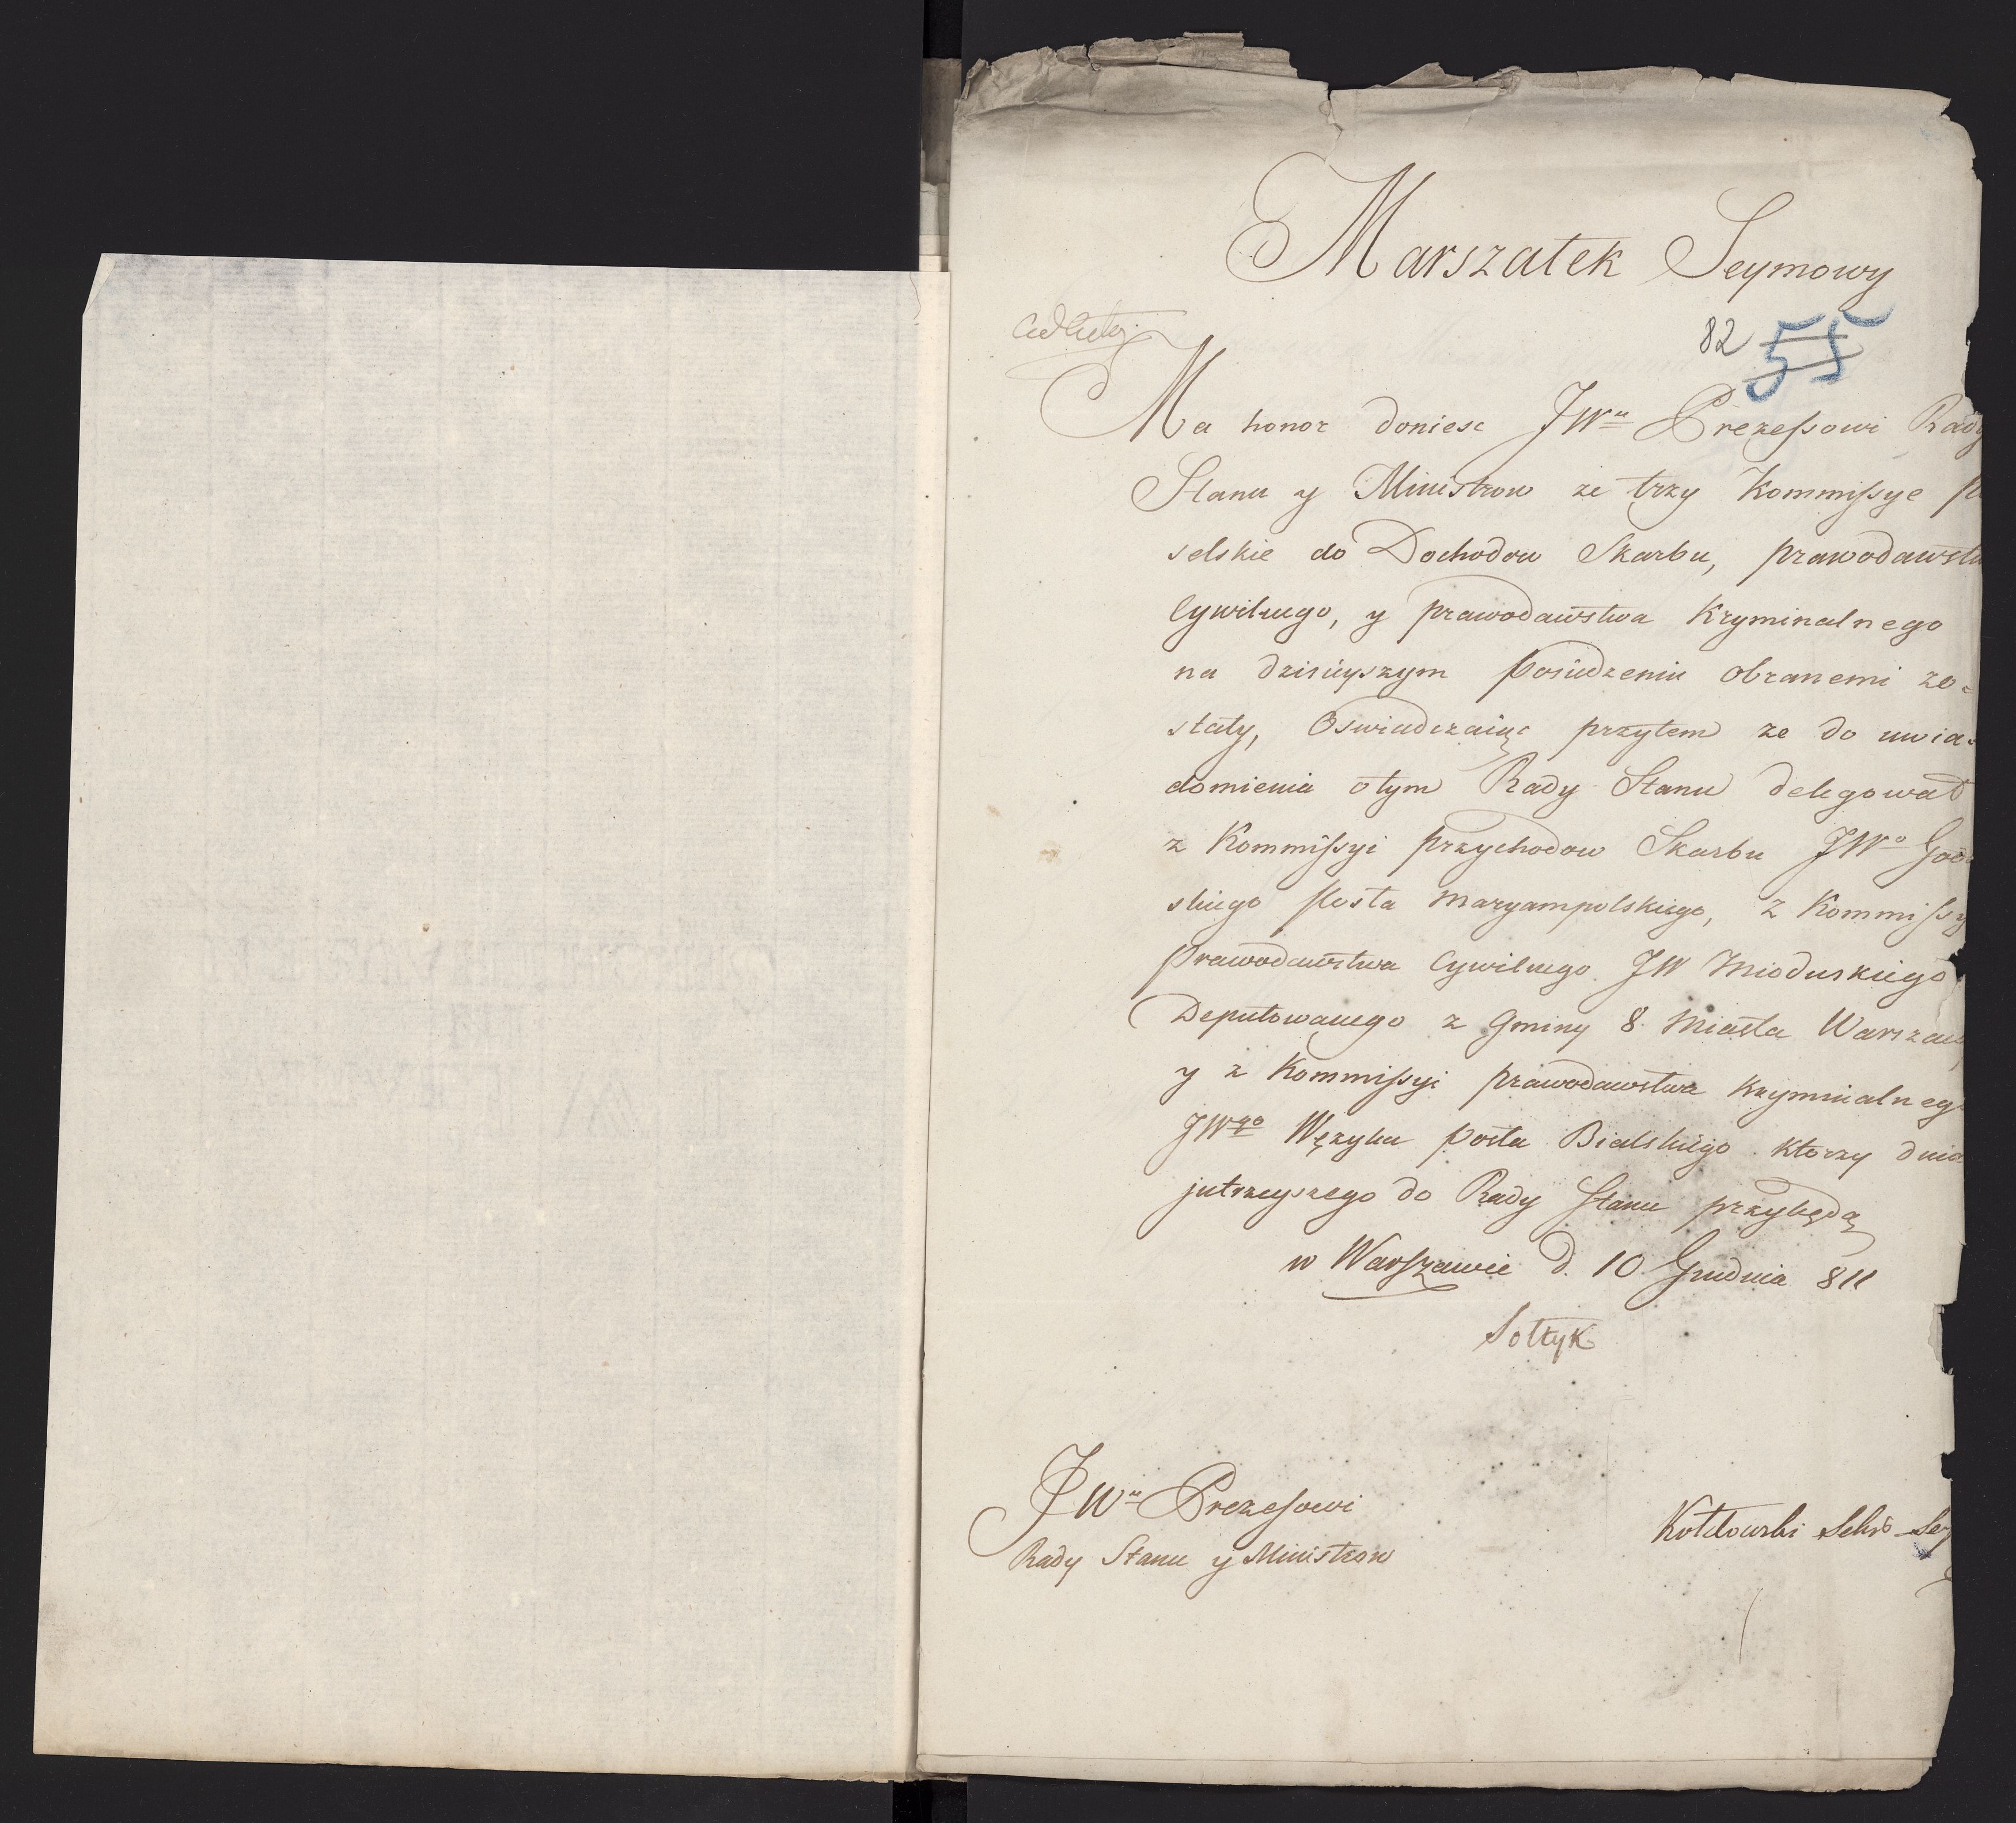 Marszałek Seymowy
82 55
Ma honor doniesc JW<sup>u</sup> Prezessowi Rady
Stanu y Ministrow ze trzy Kommissye
selskie do Dochodow Skarbu, prawodawstw
Cywilnego, y prawodawstwa Kryminalnego
na dzisieyszym posiedzeniu obranemi zo=
stały, Oswiadczaiąc przytem ze do uwia=
domienia otym Rady Stanu delegował
z Kommissyi przychodow Skarbu JW<sup>o</sup> God
skiego Posła Maryampolskiego, z Kommissy
prawodawstwa Cywilnego JW Mioduskiego
Deputowanego z Gminy 8. Miasta Warszaw
y z Kommissyi prawodawstwa Kryminalneg
JW<sup>go</sup> Wężyka posła Bialskiego ktorzy dnia
jutrzeyszego do Rady Stanu przybędą
w Warszawie d. 10 Grudnia 811
Sołtyk
JW<sup>u</sup> Prezesowi
Rady Stanu y Ministrow
Sey